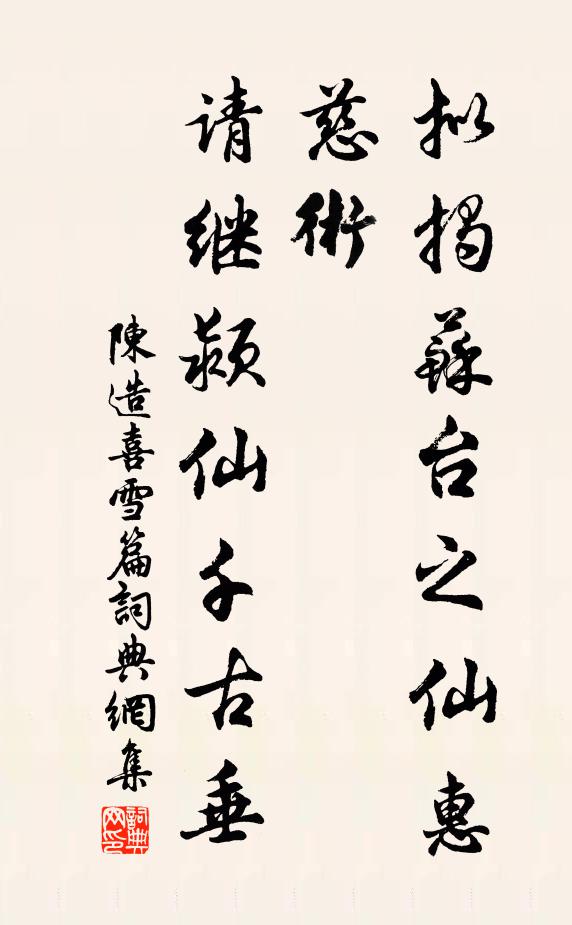 拟揭蘇台之仙惠
慈術
请继颍仙千古垂
陳造喜雪篇詞典網集
詞典網印